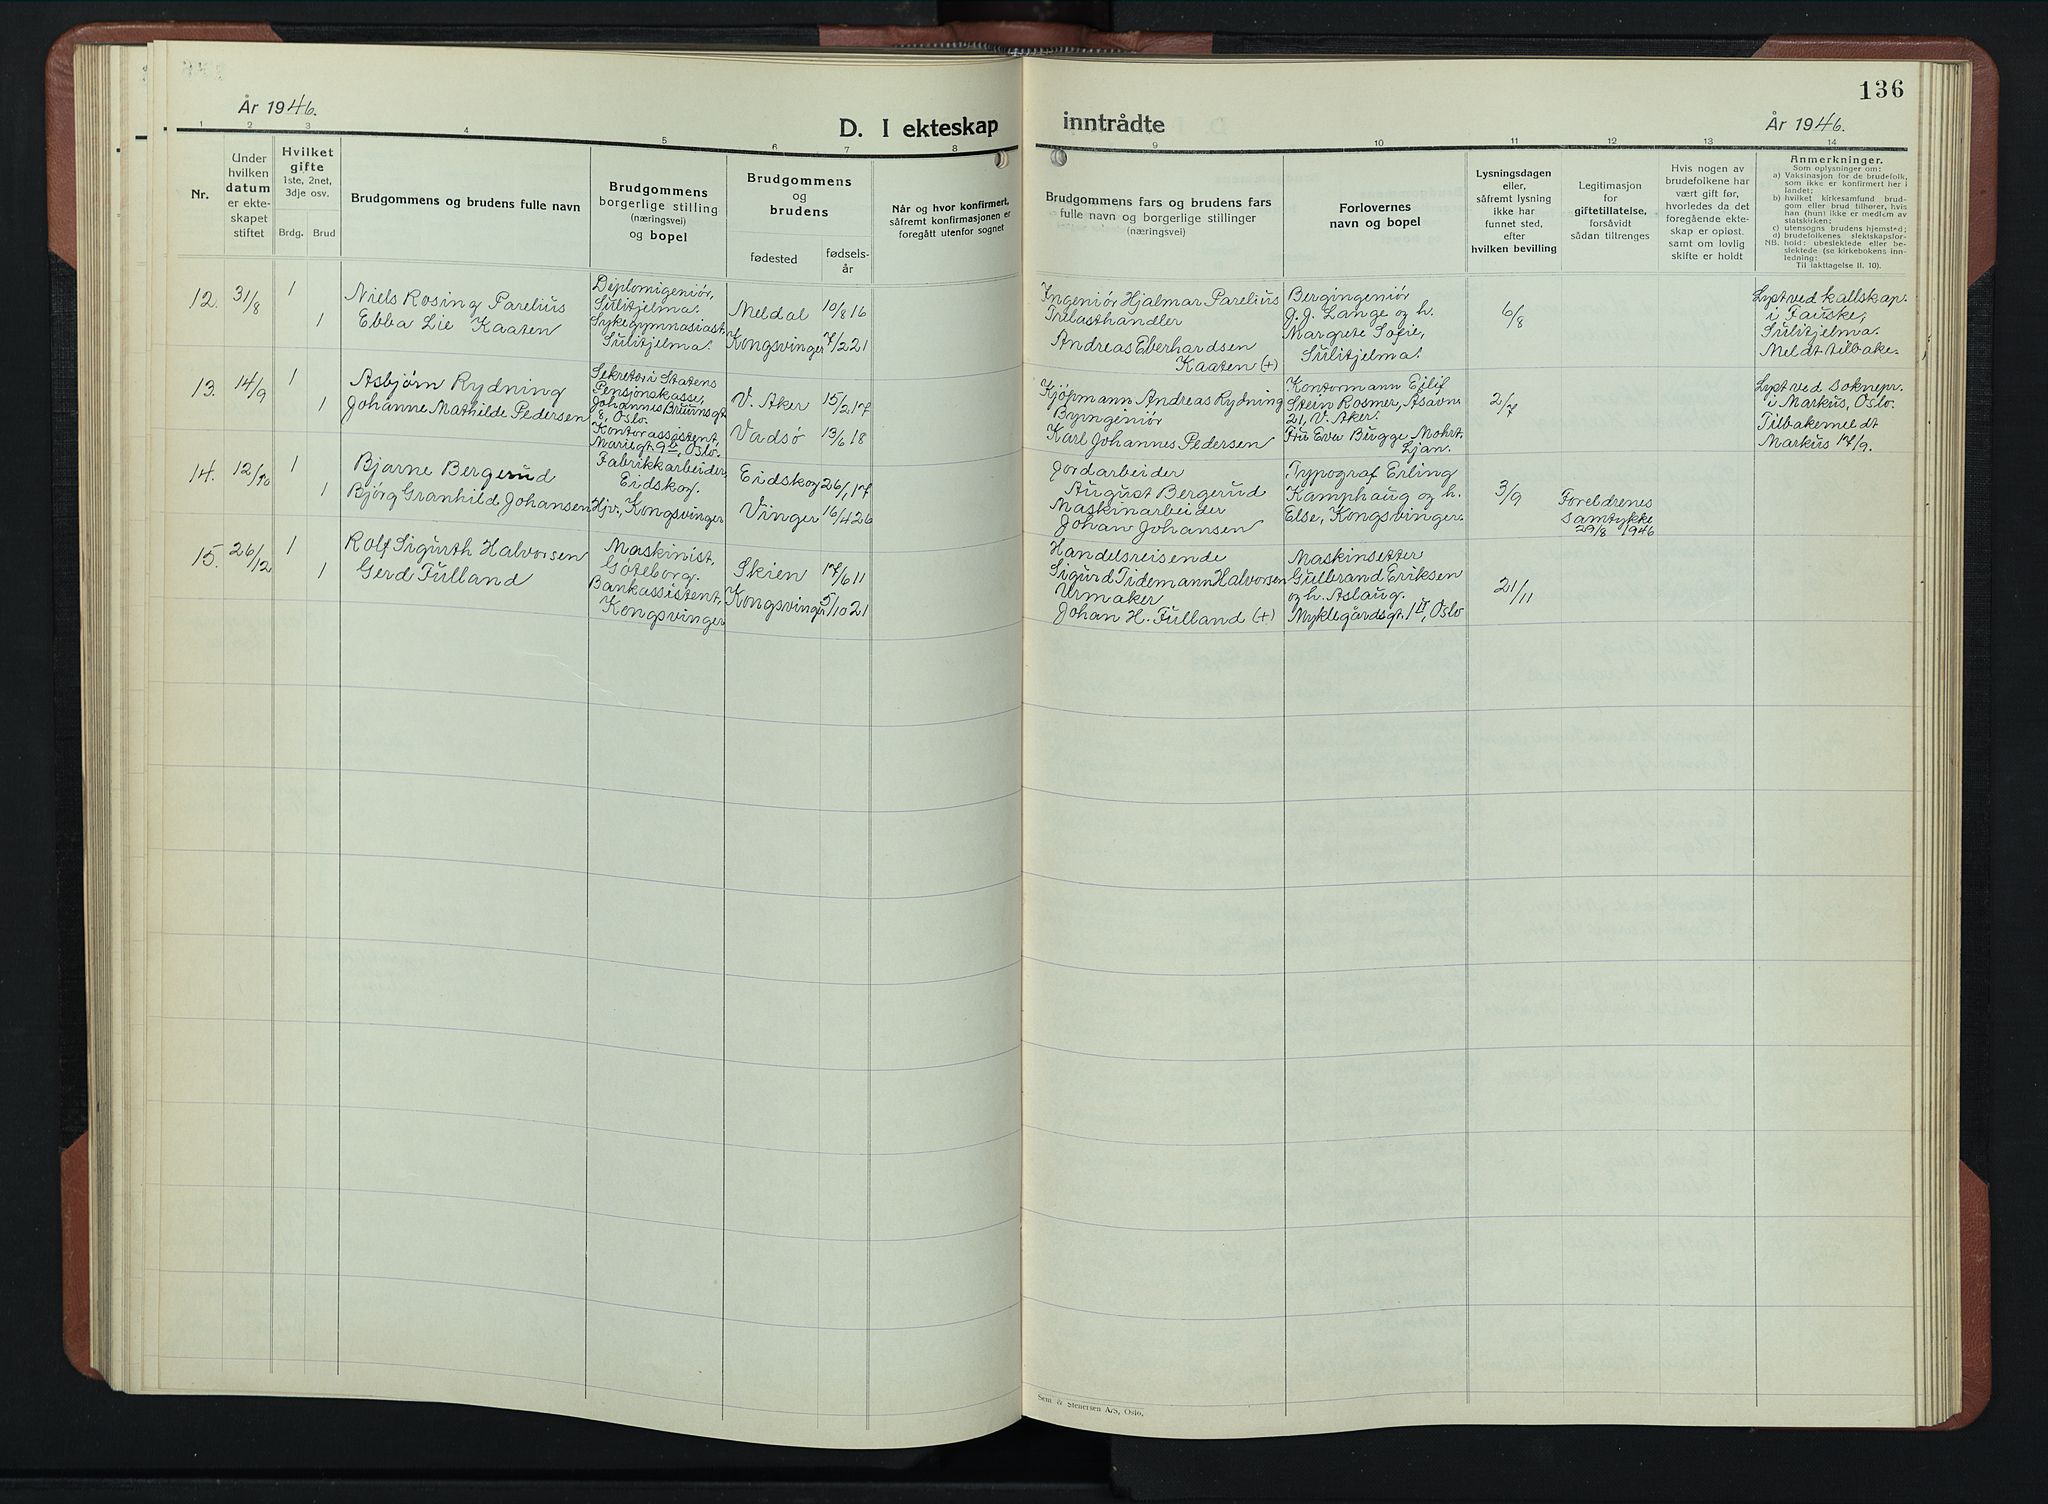 136
År 1946.
D. I ekteskap inntrådte
År 1946.
1 2 3 4 5 6 7 8 9 10 11 12 13 14
Nr.
Under
hvilken
datum
er ekte-
skapet
stiftet
Hvilket
gifte
1ste, 2net,
3dje osv.
Brdg. Brud
Brudgommens og brudens fulle navn
Brudgommens
borgerlige stilling
(næringsvei)
og bopel
Brudgommens
og
brudens
fødested
fødsels-
år
Når og hvor konfirmert,
såfremt konfirmasjonen er
foregått utenfor sognet
Brudgommens fars og brudens fars
fulle navn og borgerlige stillinger
(næringsvei)
Forlovernes
navn og bopel
Lysningsdagen
eller,
såfremt lysning
ikke har
funnet sted,
efter
hvilken bevilling
Legitimasjon
for
giftetillatelse,
forsåvidt
sådan tiltrenges
Hvis nogen av
brudefolkene har
vært gift før,
hvorledes da det
foregående ekte-
skap er opløst.
samt om lovlig
skifte er holdt
Anmerkninger.
Som oplysninger om:
a) Vaksinasjon for de brudefolk,
som ikke er konfirmert her i
landet;
b) hvilket kirkesamfund brud-
gom eller brud tilhører, hvis
han (hun) ikke er medlem av
statskirken;
c) utensogns brudens hjemsted;
d) brudefolkenes slektskapsfor-
NB. hold: ubeslektede eller be-
slektede (se kirkebokens inn-
ledning:
Til iakttagelse II. 10).
12. 31/8 1
Niels Rosing Parelius
1 Ebba Lie Kaaten
Diplomigeniør,
Sulitjelma.
Sykegymnasiast,
Sulitjelma.
Meldal 10/8 16
Kongsvinger 7/2 21
Ingeniør Hjalmar Parelius
Trelasthandler
Andreas Eberhardsen
Kaaten (+)
Bergingeniør
J. J. Lange og h.
Margrete Sofie,
Sulitjelma.
6/8
Lyst ved kallskap.
i Fauske,
Sulitjelma.
Meldt tilbake.
13. 14/9 1
Asbjørn Rydning
1 Johanne Mathilde Pedersen
Sekretær i Statens
Pensjonskasse,
Johannes Bruunsgt
8, Oslo.
Kontorassistent,
Mariegt. 9 II, Oslo.
V. Aker 15/2 17
Vadsø 13/6 18
Kjøpmann Andreas Rydning
Byingeniør
Karl Johannes Pedersen
Kontormann Eilif
Stein Rosmer, Åsavn.
21, V. Aker.
Fru Eva Bugge Mohrt,
Ljan.
2/7
Lyst ved soknepr.
i Markus, Oslo.
Tilbakemeldt
Markus 17/9.
14. 12/10 1
Bjarne Bergerud
1 Bjørg Granhild Johansen
Fabrikkarbeider,
Eidskog.
Hjv., Kongsvinger
Eidskog 26/1 17
Vinger 16/4 26
Jordarbeider
August Bergerud
Maskinarbeider
Johan Johansen
Typograf Erling
Kamphaug og h.
Else, Kongsvinger.
3/9
Foreldrenes
samtykke
29/8 1946
15. 26/12 1
Rolf Sigurth Halvorsen
1 Gerd Fulland
Maskinist,
Göteborg.
Bankassistent,
Kongsvinger
Skien 17/6 11
Kongsvinger 5/10 21
Handelsreisende
Sigurd Tidemann Halvorsen
Urmaker
Johan H. Fulland (+)
Maskinsetter
Gulbrand Eriksen
og h. Aslaug.
Myklegårdsgt. 1 II, Oslo
21/11
Sem & Stenersen A/S, Oslo.